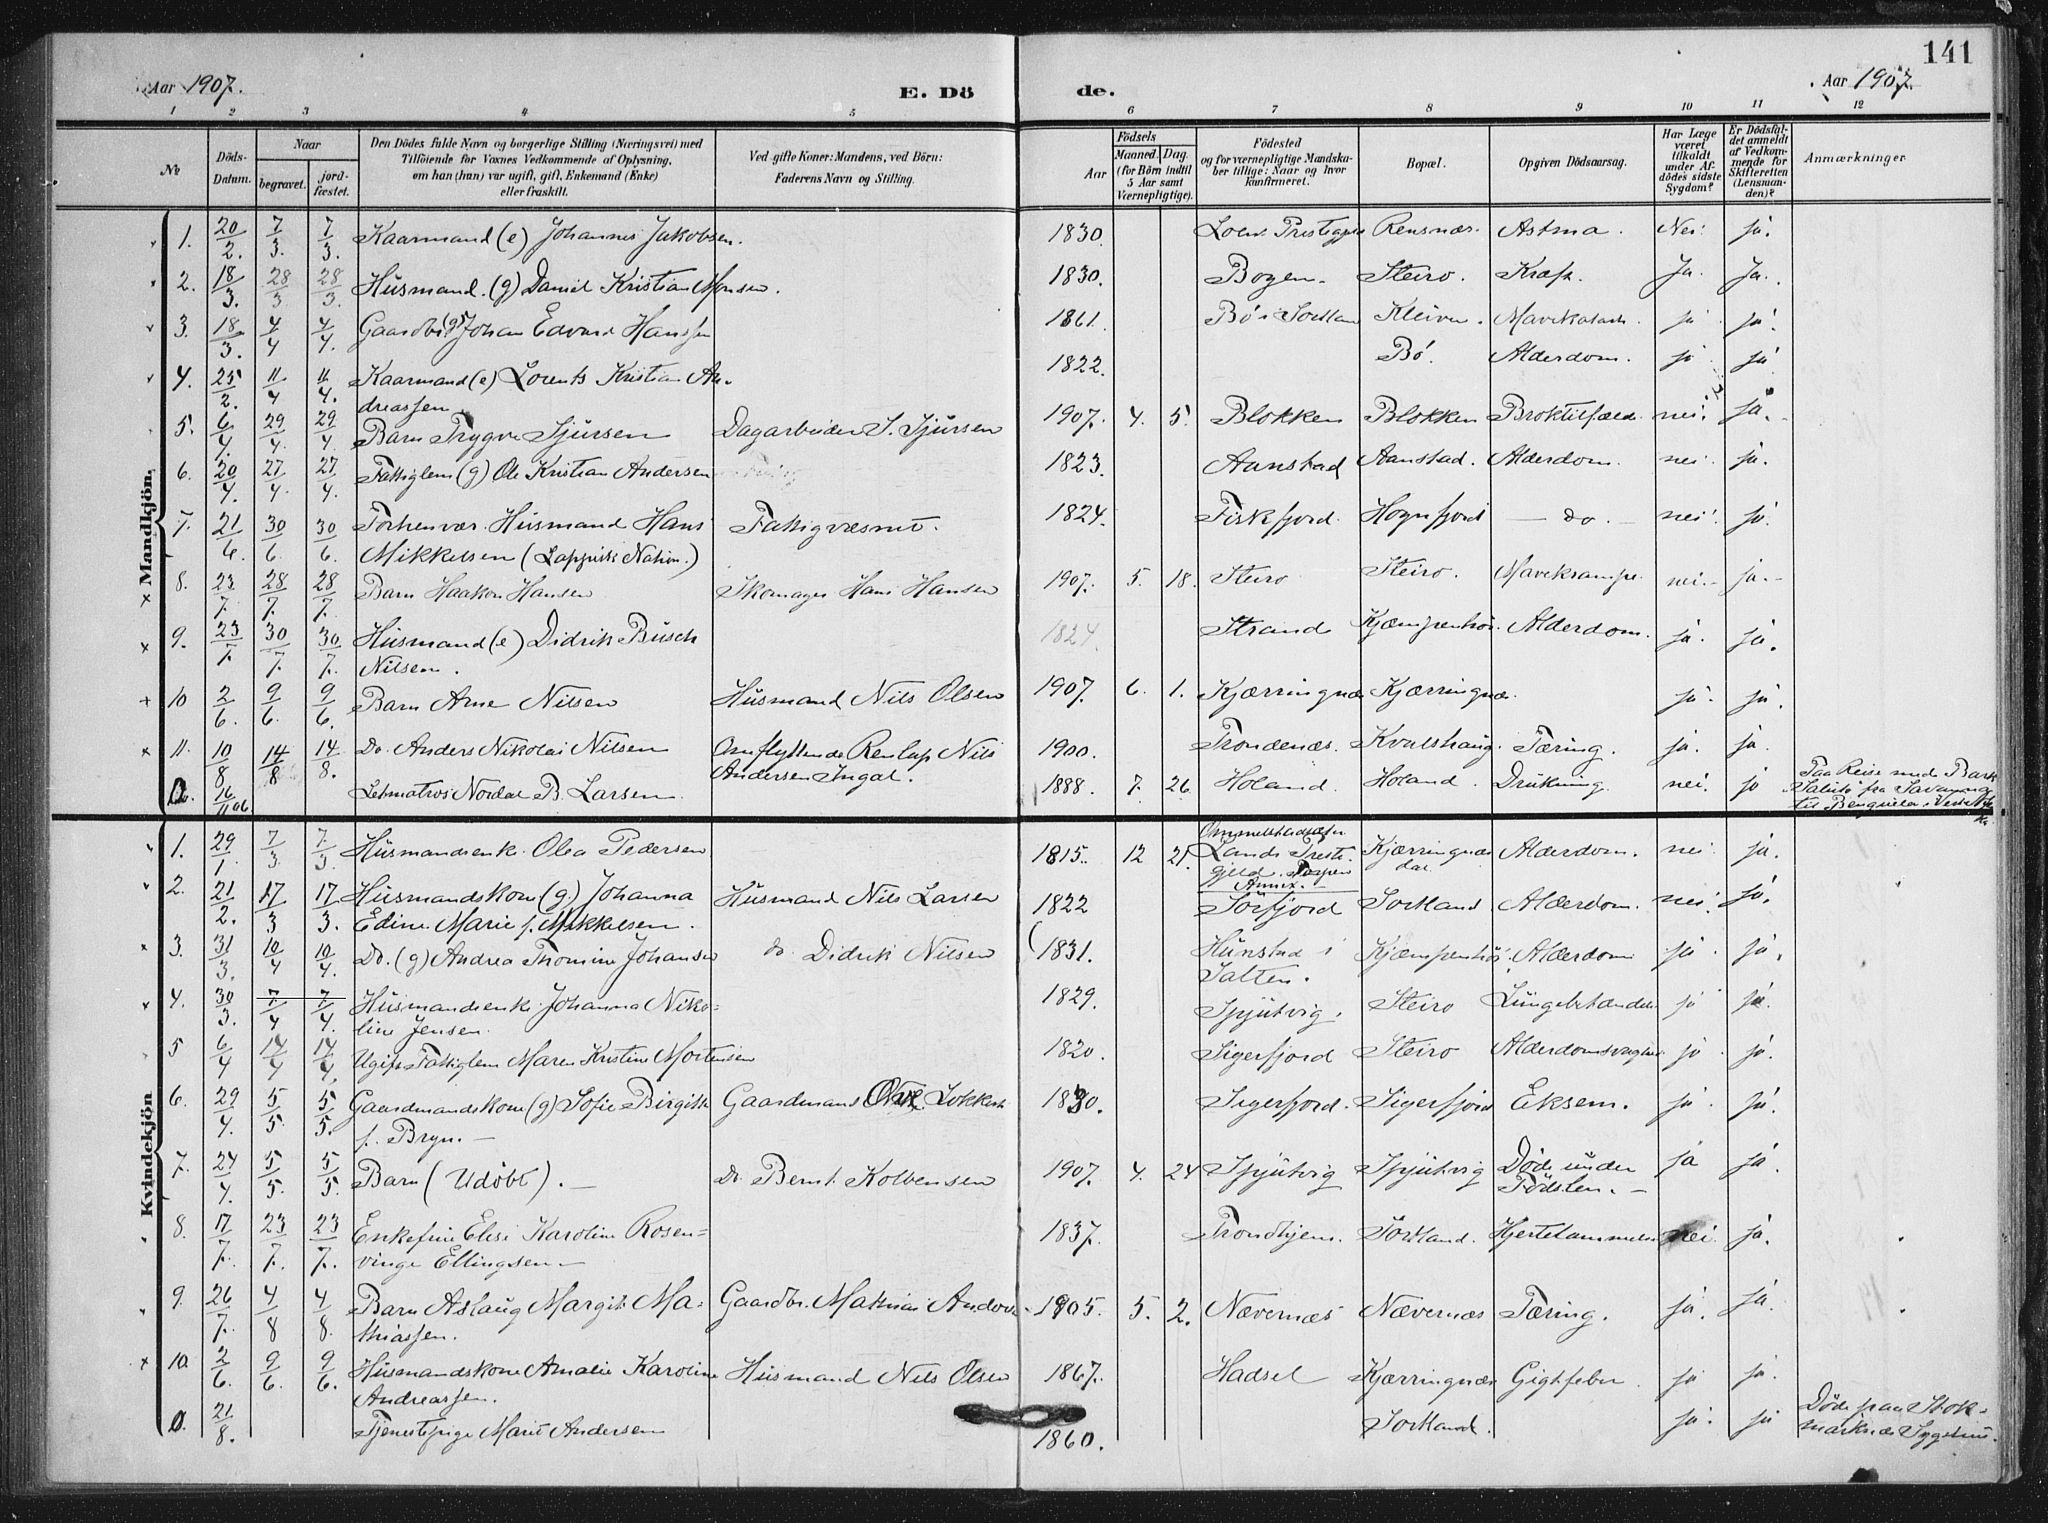 141
Aar 1907. E. Dö de. Aar 1907.
1 2 3 4 5 6 7 8 9 10 11 12
No
Döds-Datum.
Naar begravet. jordfæstet.
Den Dödes fulde Navn og borgerlige Stilling (Næringsvei) med Tilföiende for Voxnes Vedkommende af Oplysning, om han (hun) var ugift, gift, Enkemand (Enke) eller fraskilt.
Ved gifte Koner: Mandens, ved Börn: Faderens Navn og Stilling.
Födsels Aar Maaned. Dag. (for Börn indtil 5 Aar samt Værnepligtige).
Födested og for værnepligtige Mandskaber tillige: Naar og hvor konfirmeret.
Bopæl.
Opgiven Dödsaarsag.
Har Læge været tilkaldt under Afdödes sidste Sygdom?
Er Dödsfaldet anmeldt af Vedkommende for Skifteretten (Lensmanden)?
Anmærkninger
Mandkjön.
1. 20/2. 7/3. 7/3. Kaarmand (e) Johannes Jakobsen. 1830. Rensnæs. Astma. Nei. ja.
2. 18/3. 28/3 28/3. Husmand. (g) Daniel Kristian Monsen. 1830. Bogen. Steiro. Kræft. Ja. Ja.
3. 18/3. 4/4 4/4. Gaardbr. (g) Johan Edvard Hanssen 1861. Bö i Sortland Kleiva. ja. ja.
4. 25/2. 11/4 11/4. Kaarmand (e) Lorents Kristian An-
dreassen. 1822. Bö. Alderdom. ja ja
5. 6/4. 29/4. 29/4. Barn Trygve Sjursen Dagarbeider S. Sjursen 1907. 4. 5. Blokken Blokken Broktilfælde. nei. ja.
6. 20/4. 27/4. 27/4. Fattiglem (g) Ole Kristian Andersen 1823. Aanstad Aanstad. Alderdom. nei. ja.
7. 21/6. 30/6. 30/6. Forhenvær. Husmand Hans Fattigvæsnet. 1824. Fiskfjord. Hognfjord — do. — nei. ja.
Mikkelsen (Lappisk Nation.)
8. 23/7. 28/7. 28/7. Barn Haakon Hansen Skomager Hans Hansen 1907. 5. 18. Steiro Steiro. Mavekrampe. nei. ja.
9. 23/7. 30/7. 30/7. Husmand (e) Didrik Busch
Nilsen. 1824. Strand Kjæmpenhöi. Alderdom. ja. ja.
10 2/6. 9/6. 9/6. Barn Arne Nilsen Husmand Nils Olsen 1907. 6. 1. Kjærringnæs Kjærringnæs. ja. ja.
11. 10/8 14/8 14/8. Do. Anders Nikolai Nilsen Omflyttende Renlap Nils
Andersen Ingal. 1900. Trondenæs. Kvalshaug. Tæring. ja. ja.
16/11 06 Letmatros Nordal B. Larsen. 1888. 7. 26. Holand. Holand. Drukning. nei. ja Paa Reise med Bark
fra Savanna
til
Kvindekjön
1. 29/1. 7/3. 7/3 Husmandsenke. Olea Pedersen 1815. 12 21. Lands Præstegjeld. Annex. Kjærringnæsdal Alderdom. nei. ja.
2. 21/2. 17/3 17/3. Husmandskone (g) Johanna Husmand Nils Larsen 1822 Sörfjord Sortland. Alderdom. nei. ja.
Edine Marie f. Mikkelsen.
3. 31/3. 10/4 10/4. Do. (g) Andrea Tromine Johansen do Didrik Nilsen 1831. Hunstad i
Salten. Kjæmpenhöi. Alderdom ja ja.
4. 30/3. 7/4 7/4. Husmandsenke. Johanna Niko-
line Jensen. 1829. Spjutvig. Steiro Lungebetændelse ja ja.
5 6/4 14/4 14/4. Ugift Fattiglem Maren Kristine Mortensen 1820. Sigerfjord Steiro Alderdomsvaghed ja ja.
6. 29/4. 5/5. 5/5. Gaardmandskone (g) Sofie Birgitte Gaardmand 1830. Sigerfjord. Sigerfjord Eksem. ja. ja.
f. Bryn. —
7. 24/4. 5/5. 5/5. Barn (Udöbt). — Do. Bernt Kolbensen 1907. 4. 24 Spjutvig Spjutvig Död under
Födslen. — ja ja.
8. 17/7. 23/7. 23/7. Enkefrue Elise Karoline Rosen-
vinge Ellingsen — 1837. Trondhjem. Sortland. Hjertelammelse nei. ja.
9. 26/7. 4/8 4/8. Barn Aslaug Margit Ma-
thiassen. Gaardbr. Mathias Anders 1905. 5. 2. Nævernæs Nævernæs Tæring. ja. ja.
10. 2/6. 9/6. 9/6. Husmandskone Amalie Karoline
Andreassen. Husmand Nils Olsen 1867. Hadsel Kjærringnæs Gigtfeber ja ja.
21/8. Tjenestepige Marit Andersen 1860. Sortland. ja. ja Död paa Stok-
marknæs Sygehus.